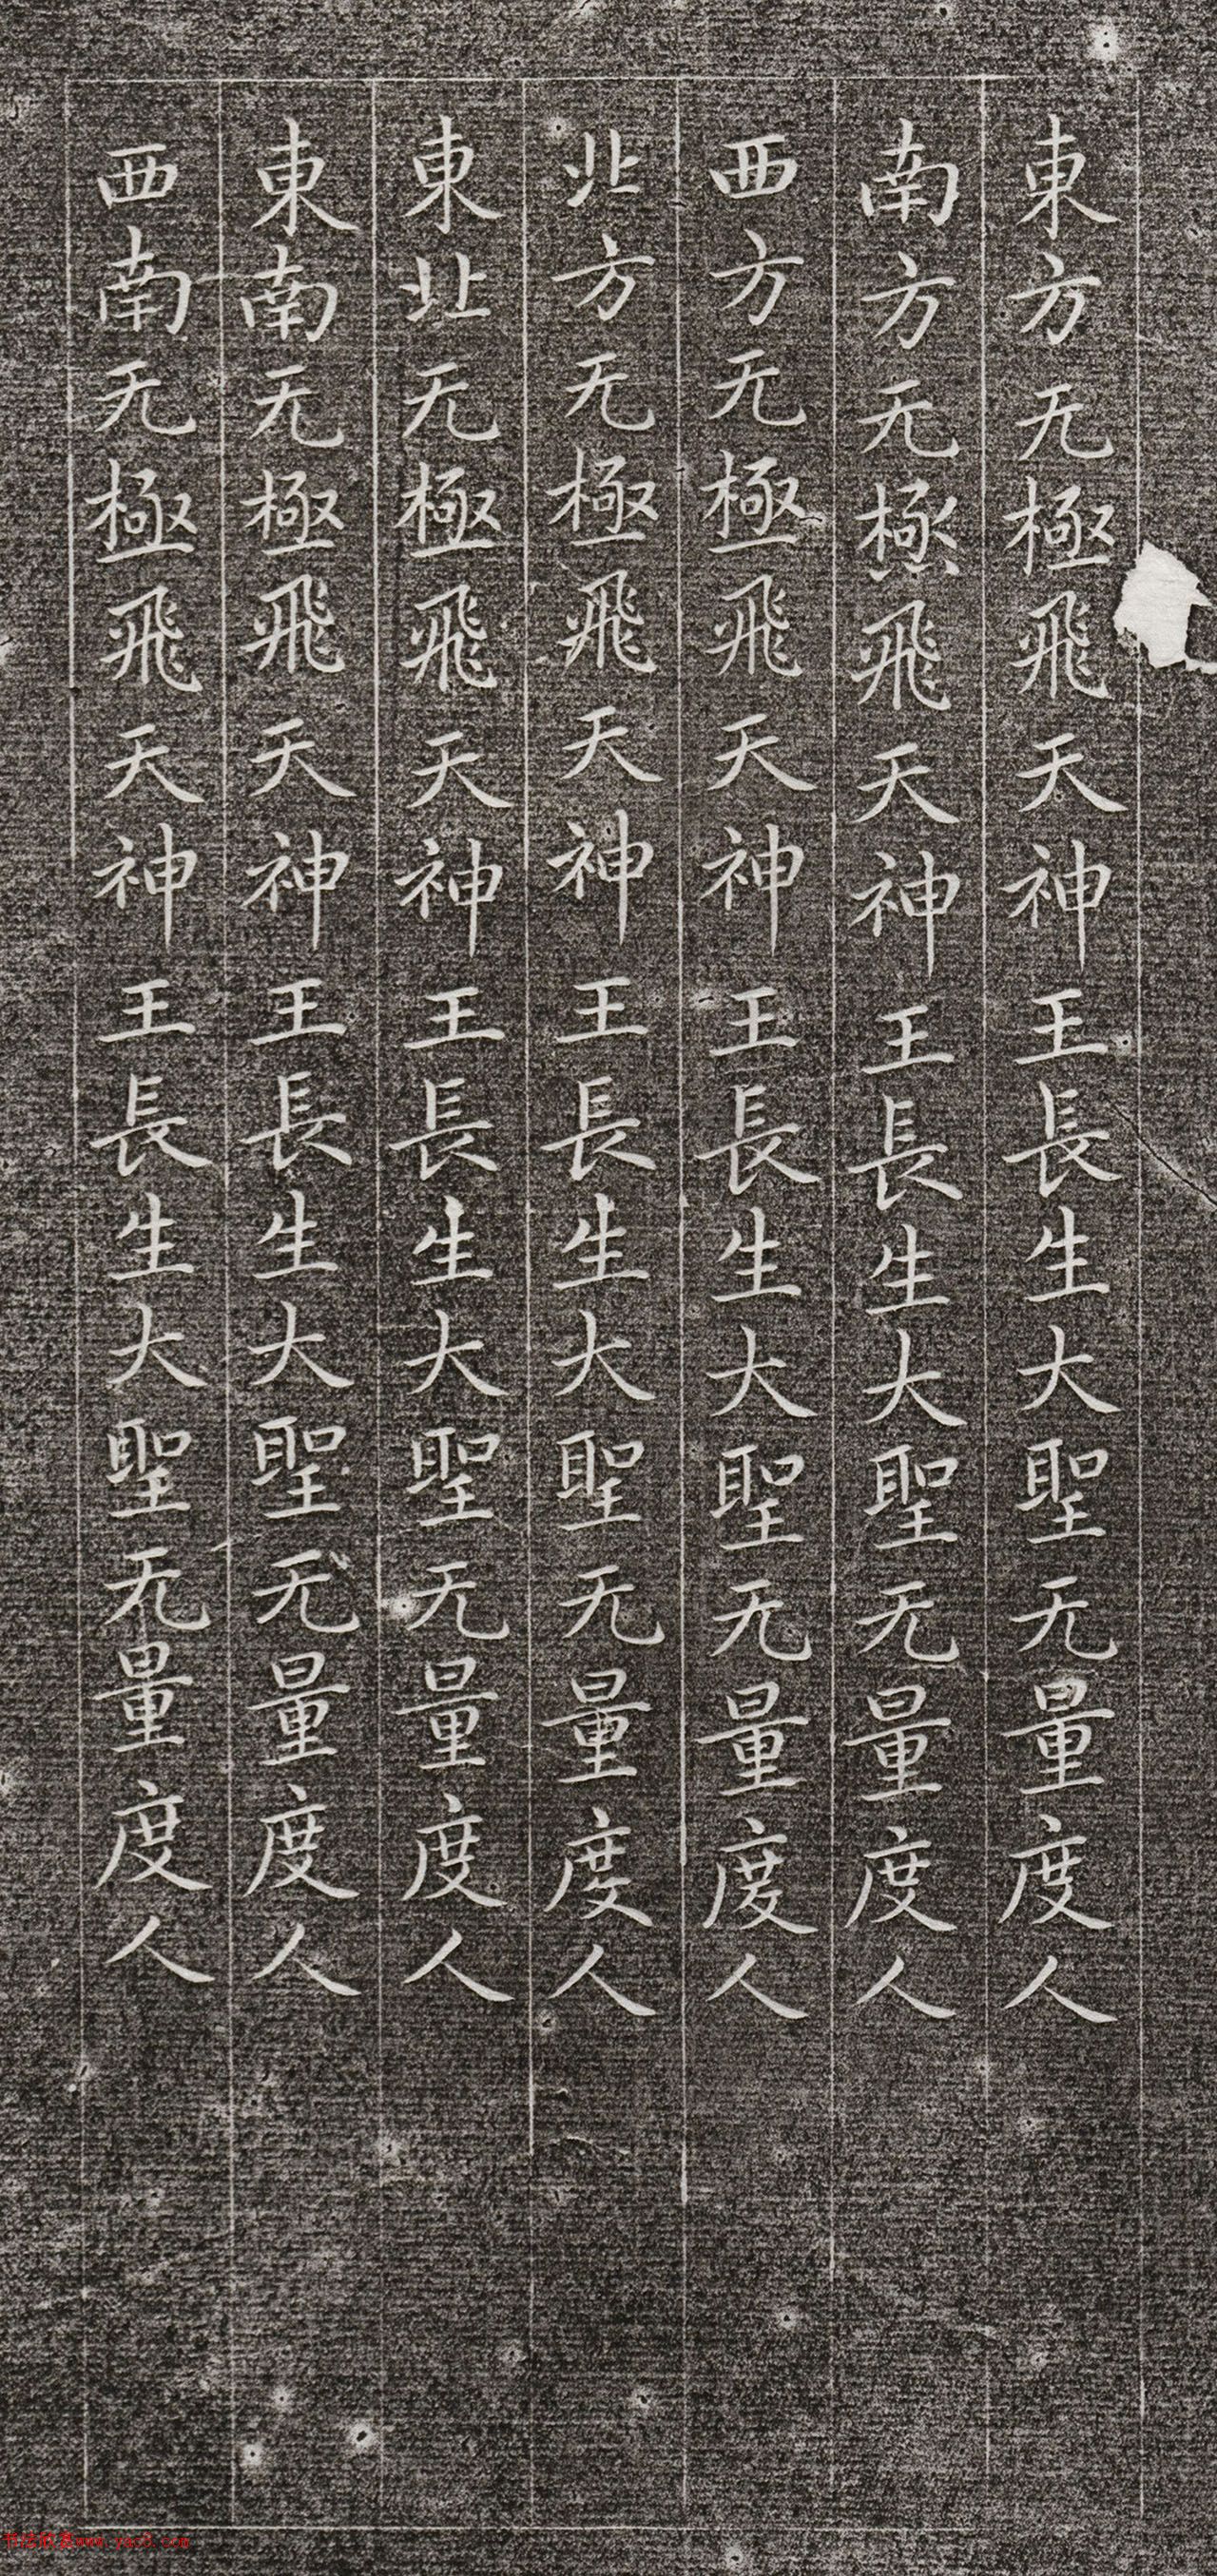 東方无極飛天神王長生大聖无量度人
南方无極飛天神王長生大聖无量度人
西方无極飛天神王長生大聖无量度人
北方无極飛天神王長生大聖无量度人
東北无極飛天神王長生大聖无量度人
東南无極飛天神王長生大聖无量度人
西南无極飛天神王長生大聖无量度人
书法欣赏www.yac8.com